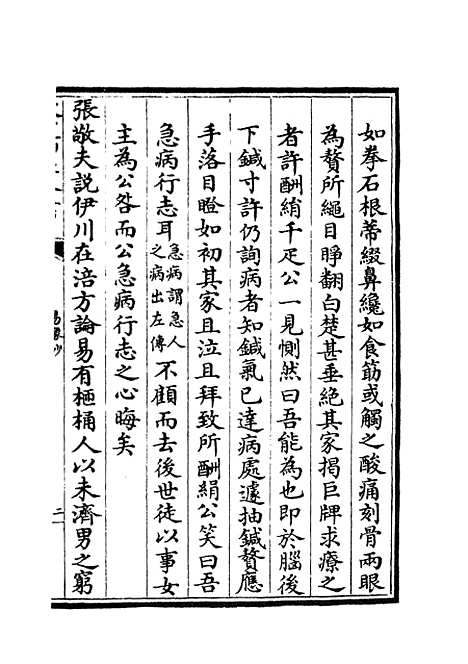 如拳石根蒂綴鼻纔如食筋或觸之酸痛刻骨兩眼
為贅所繩目睜翻白楚甚垂絶其家揭巨牌求療之
者許酬絹千疋公一見惻然曰吾能為也即於腦後
下鍼寸許仍詢病者知鍼氣已達病處遽抽鍼贅應
手落目瞪如初其家且泣且拜致所酬絹公笑曰吾
急病行志耳急病謂急人之病出左傳不顧而去後世徒以事女
主為公咎而公急病行志之心晦矣
張敬夫説伊川在涪方論易有桶桶人以未濟男之窮